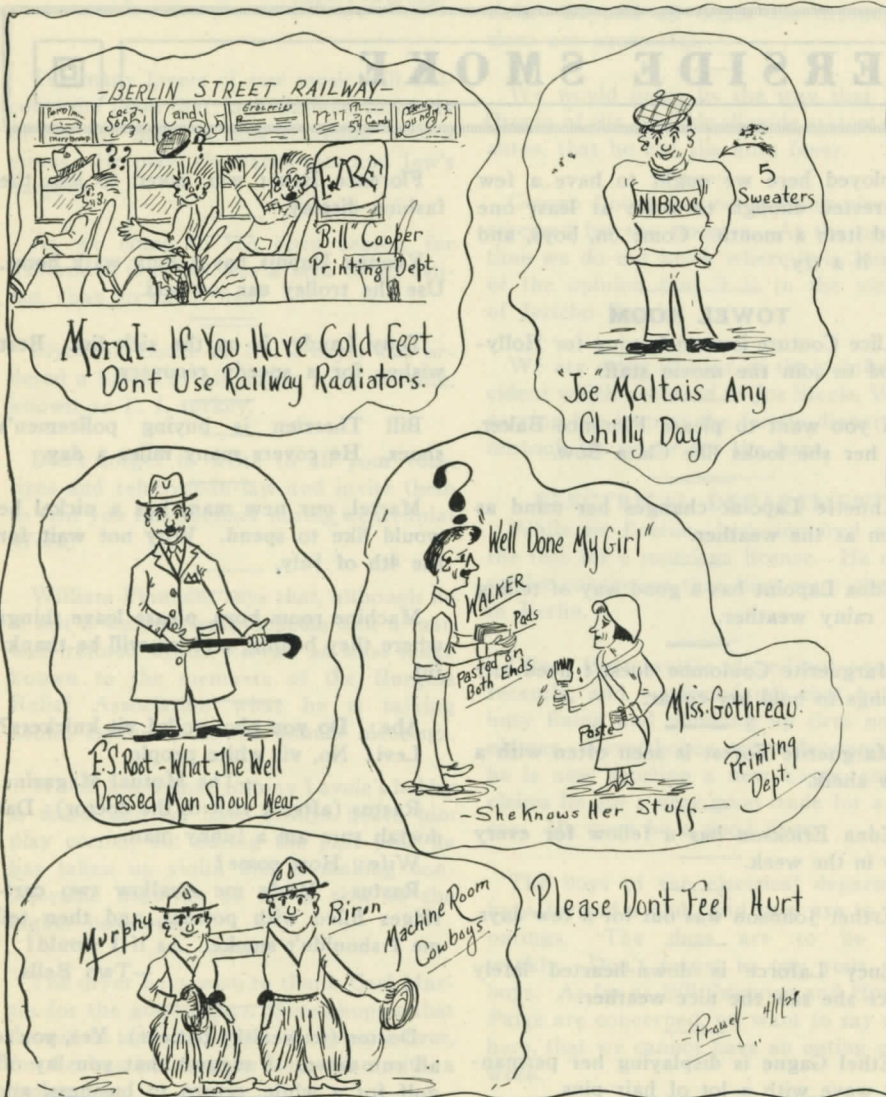 -BERLIN STREET RAILWAY-
Candy 5
Groceries
Candy
??
?
FIRE
"Bill" Cooper
Printing Dept.
Moral- If You Have Cold Feet
Dont Use Railway Radiators.
5
Sweaters
NIBROC
"Joe" Maltais Any
Chilly Day
E.S. Root - What The Well
Dressed Man Should Wear
??
"Well Done My Girl"
WALKER
Pads
Pasted on
Both Ends
Paste
Miss. Gothreau.
Printing
Dept.
-She Knows Her Stuff
Murphy
Biron
Machine Room
Cowboys
Please Don't Feel Hurt